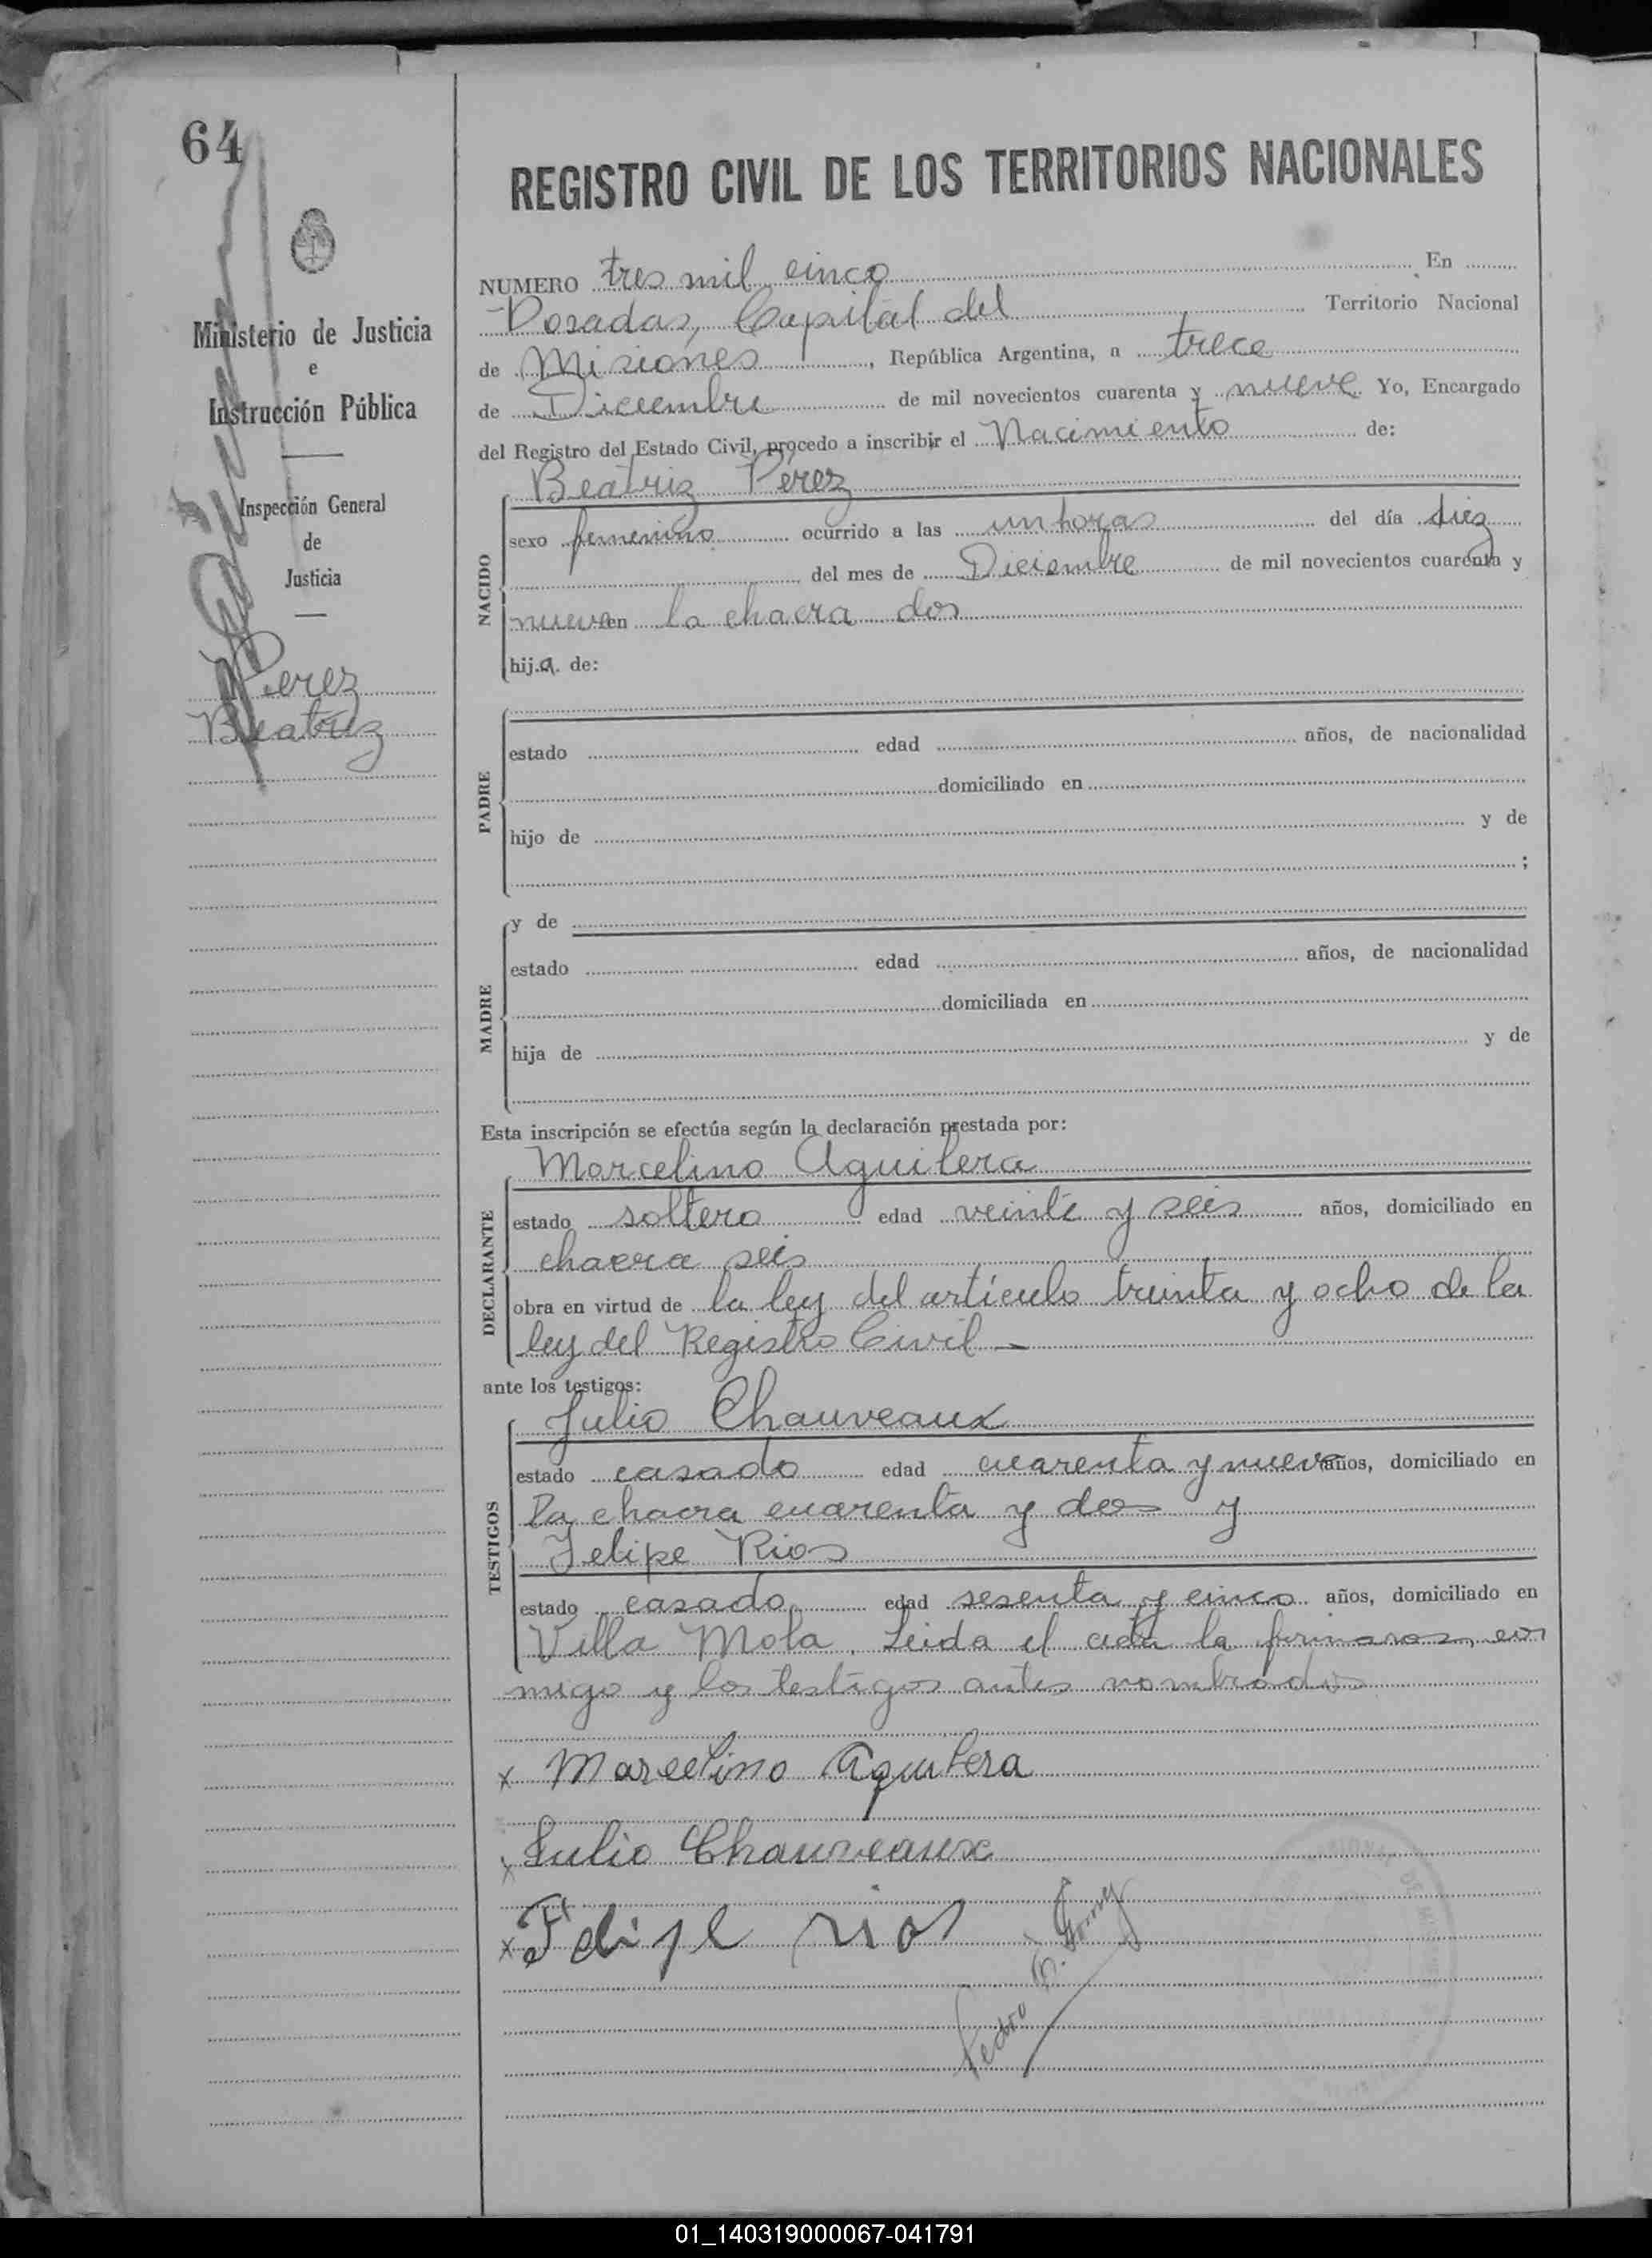 64
Ministerio de Justicia
e
Instrucción Pública
Inspección General
de
Justicia
Perez
Beatriz
REGISTRO CIVIL DE LOS TERRITORIOS NACIONALES
NUMERO tres mil cinco En
Posadas, Capital del Territorio Nacional
de Misiones, República Argentina, a trece
de Diciembre de mil novecientos cuarenta y nueve Yo, Encargado
del Registro del Estado Civil, procedo a inscribir el Nacimiento de:
Beatriz Pérez
NACIDO
sexo femenino ocurrido a las un horas del día diez
del mes de Diciembre de mil novecientos cuarenta y
nueve en la chacra dos
hij.a. de:
PADRE
estado edad años, de nacionalidad
domiciliado en
hijo de y de
;
MADRE
y de
estado edad años, de nacionalidad
domiciliada en
hija de y de
Esta inscripción se efectúa según la declaración prestada por:
DECLARANTE
Marcelino Aguilera
estado soltero edad veinte y seis años, domiciliado en
chacra seis
obra en virtud de la ley del artículo treinta y ocho de la
ley del Registro Civil —
ante los testigos:
TESTIGOS
Julio Chauveaux
estado casado edad cuarenta y nueve años, domiciliado en
la chacra cuarenta y dos y
Felipe Rios
estado casado edad sesenta y cinco años, domiciliado en
Villa Mola. Leida el acta la firmaron con
migo y los testigos antes nombrados
x Marcelino Aguilera
x Julio Chauveaux
x Felipe rios
Pedro
01_140319000067-041791